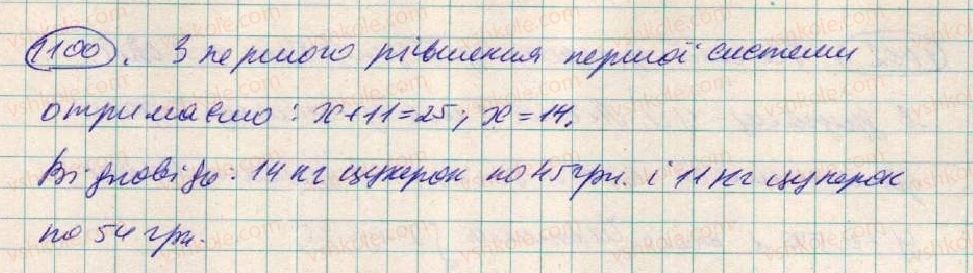 1100. З першого рівняння першої системи
отримаємо: x+11=25; x=14.
Відповідь: 14 кг цукерок по 45 грн. і 11 кг цукерок
по 54 грн.